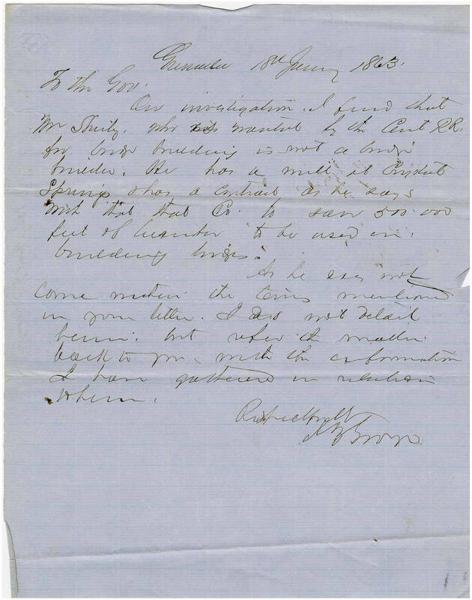 18th Jany 1863.
To the Gov.
On investigation I find that
Mr who is wanted by the Cent RR.
for bridge building is not a bridge
builder. He has a mill at
Springs & has a contract as he says
with that that Co. to saw 500.000
feet of lumber to be used in
building bridges.
As he does not
come within the terms mentioned
in your letter. I do not detail
him. but refer the matter
back to you. with the information
I have gathered in relation
to him.
Respectfully